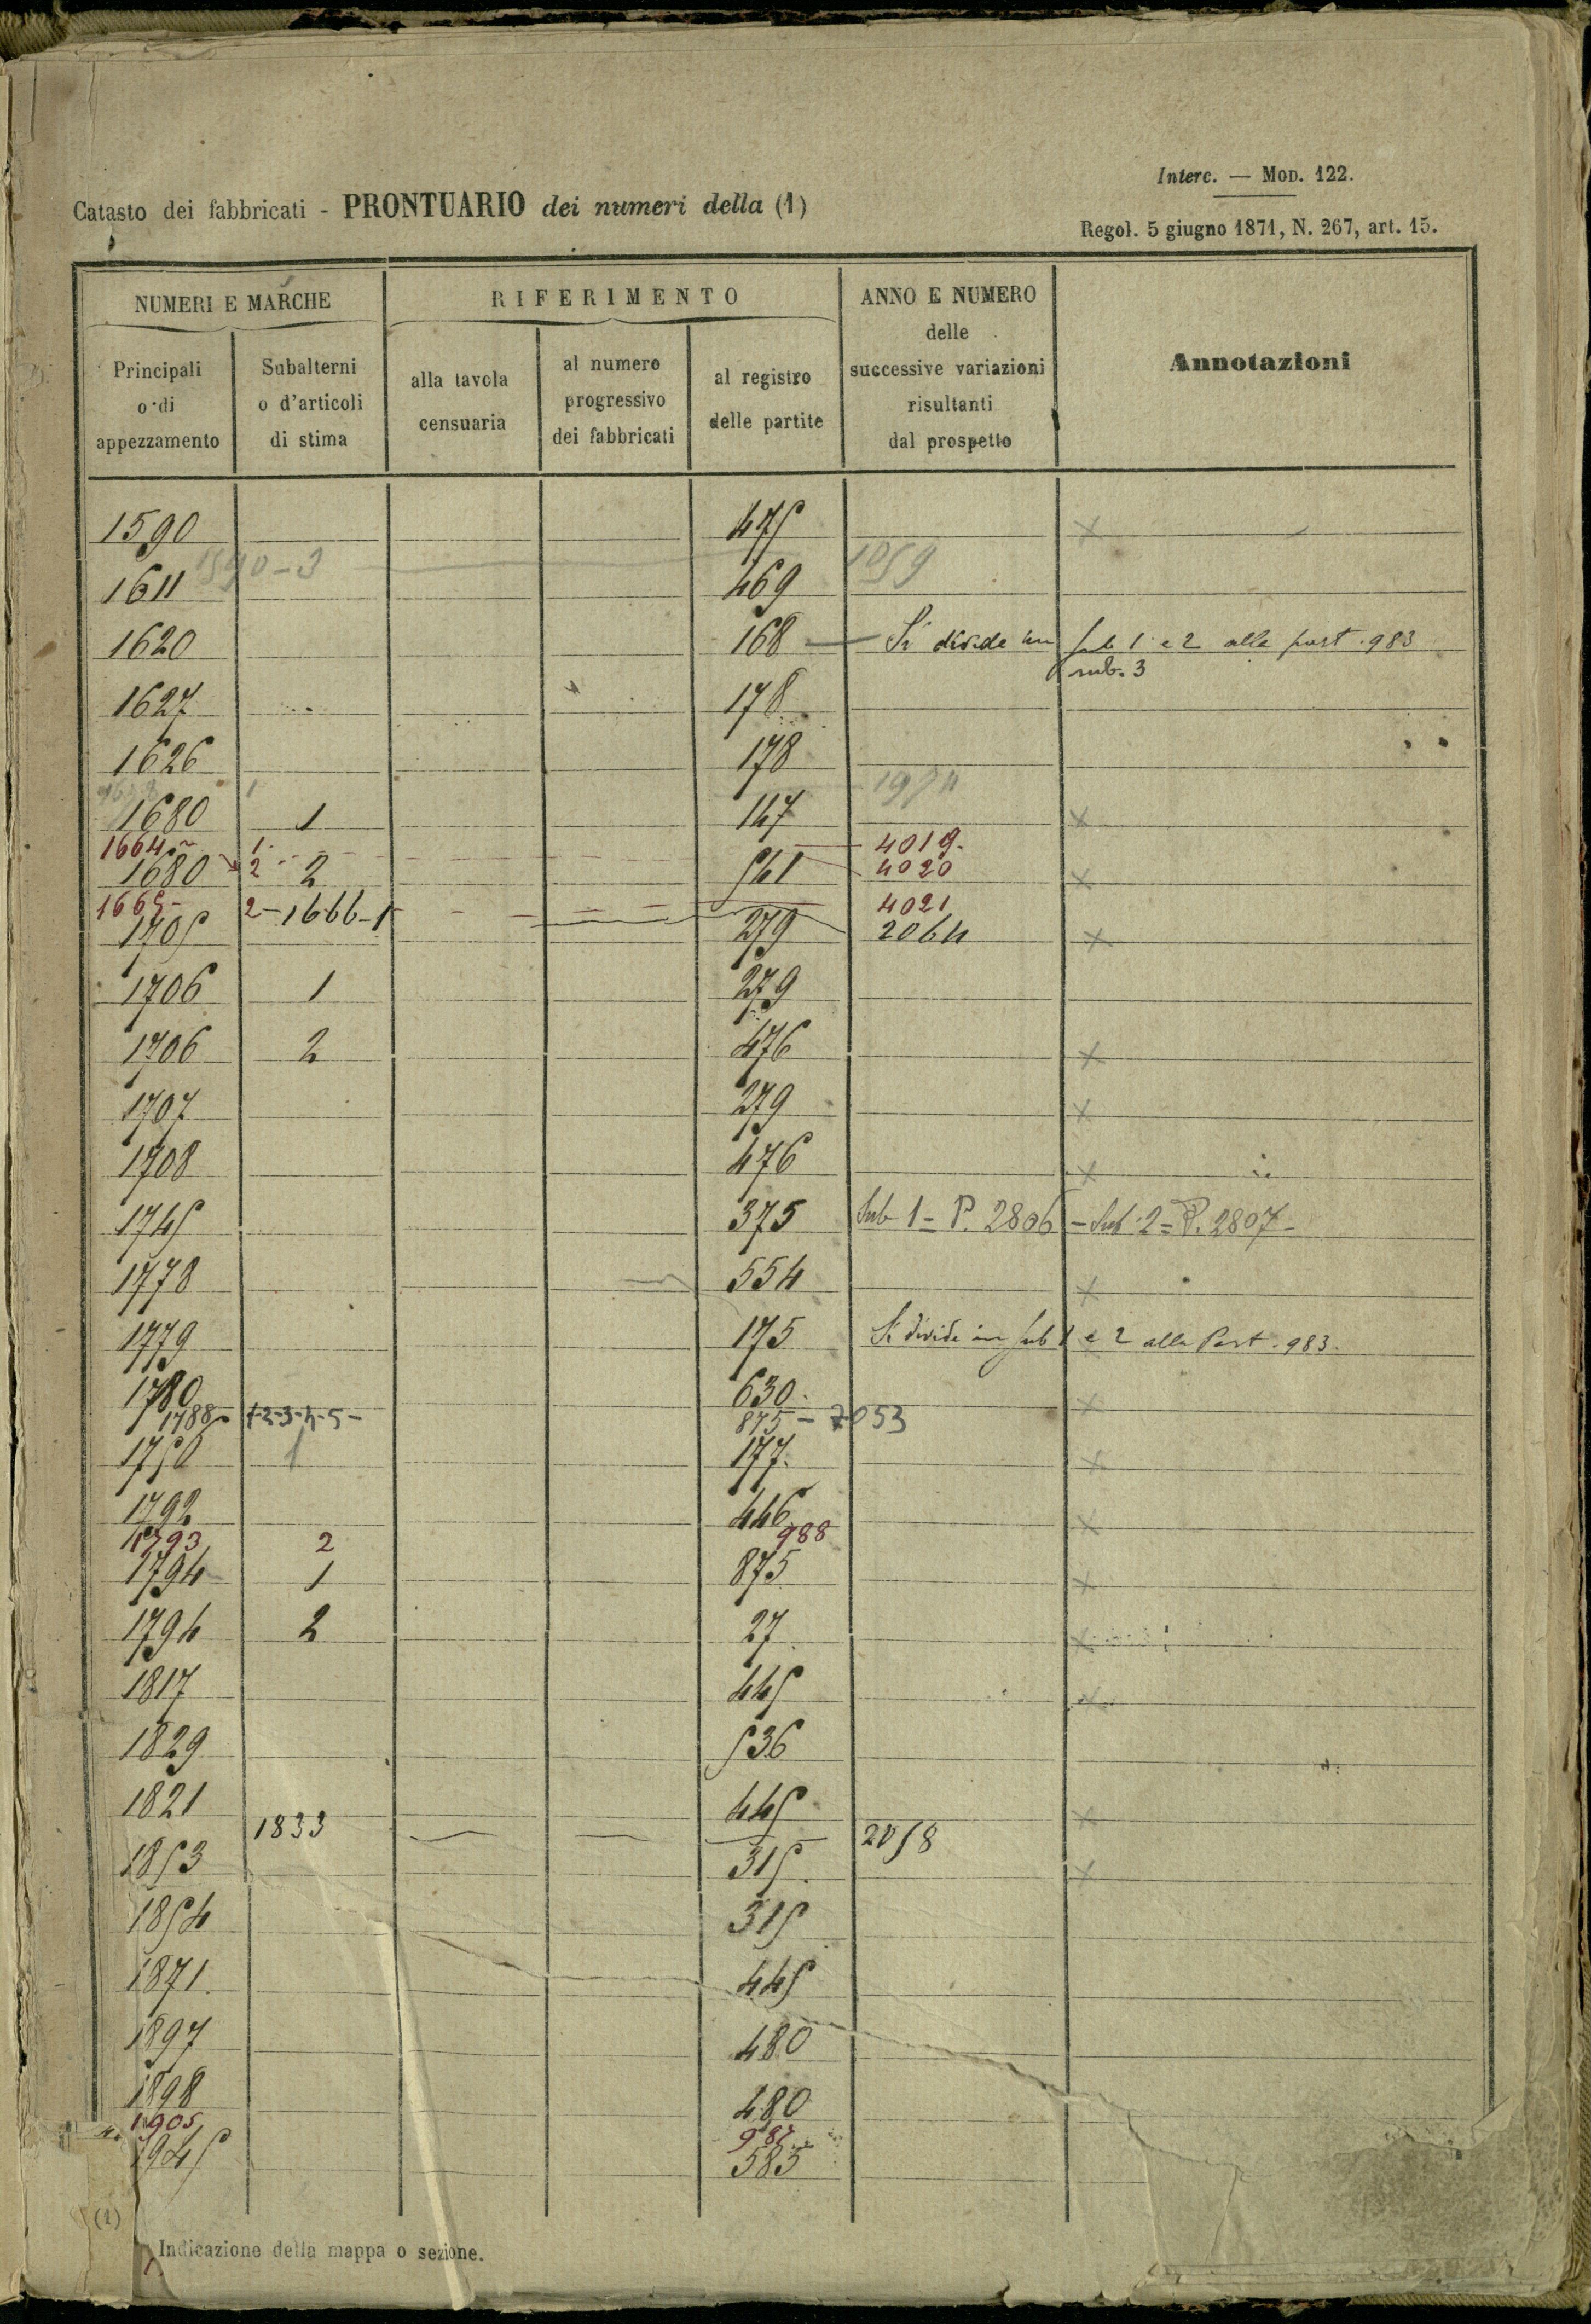 Interc. — Mod. 122.
Catasto dei fabbricati - PRONTUARIO dei numeri della (1)
Regol. 5 giugno 1871, N. 267, art. 15.
NUMERI E MARCHE
RIFERIMENTO
ANNO E NUMERO delle successive variazioni risultanti dal prospetto
Annotazioni
Principali o di appezzamento
Subalterni o d'articoli di stima
alla tavola censuaria
al numero progressivo dei fabbricati
al registro delle partite
1590 475 x
1590-3 1059
1611 469
1620 168 — Si divide in sub 1 e 2 alla part. 983
sub. 3
1627 178
1626 178
1
1680 1 147 x
1664 1 4019
1680 2 2 541 4020 x
1665 - 2 - 1666-1 4021
1705 279 2064 x
1706 1 279
1706 2 476 x
1707 279 x
1708 476 x
1745 375 Sub 1 = P. 2806 - Sub. 2 = P. 2807 -
1778 554 x
1779 175 Si divide in sub 1 e 2 alla Part. 983.
1780 630. x
1788 1-2-3-4-5- 875 - 7053
1750 1 177. x
1792 446 x
1793 2 988
1794 1 875 x
1794 2 27 x
1817 445 x
1829 536
1821 445 x
1833 2058
1853 315. x
1854 315
1871. 445
1897 480
1898 480
1905 987
1945 585
(1) Indicazione della mappa o sezione.